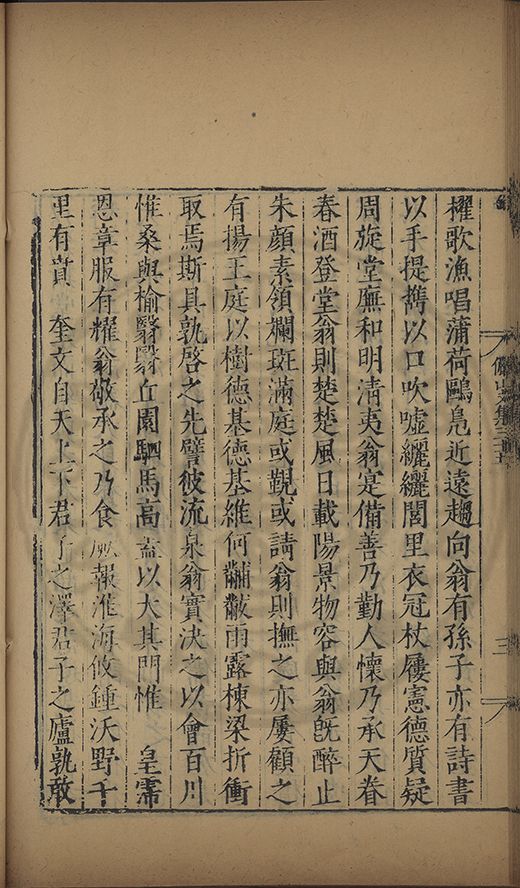 櫂歌漁唱蒲荷鷗鳧近遠趨向翁有孫子亦有詩書
以手提攜以口吹噓纚纚閭里衣冠杖屨憲德質疑
周旋堂廡和明清夷翁寔備善乃勤人懷乃承天眷
春酒登堂翁則楚楚風日載陽景物容與翁旣醉止
朱顏素領斕斑滿庭或觀或請翁則撫之亦屢顧之
有揚王庭以樹德基德基維何黼黻雨露棟梁折衝
取焉斯具孰啓之先譬彼流泉翁實決之以會百川
惟桑與榆翳翳丘園駟馬高蓋以大其門惟 皇霈
恩章服有耀翁敬承之乃食厥報淮海攸鍾沃野千
里有賁 奎文自天上下君子之澤君子之廬孰敢
三